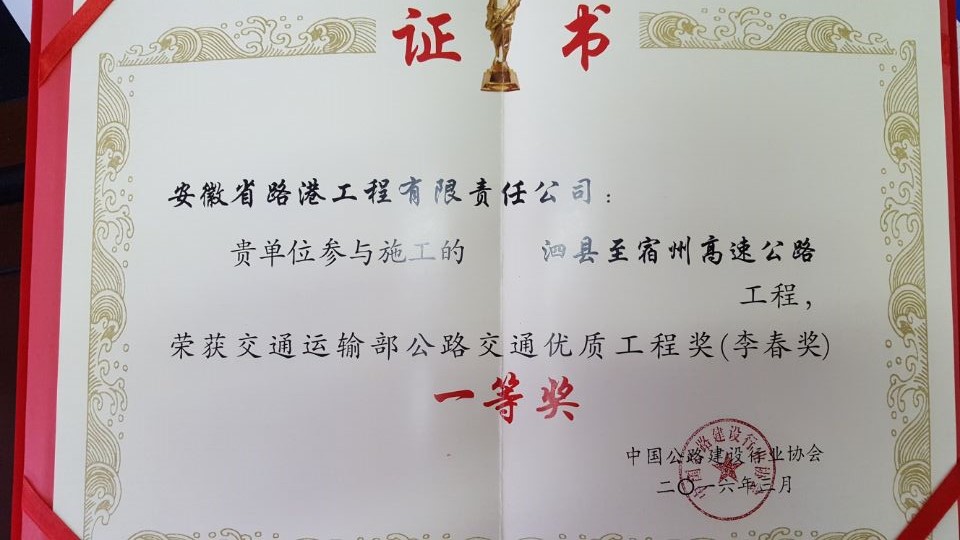 证书
安徽省路港工程有限责任公司：
贵单位参与施工的 泗县至宿州高速公路
工程，
荣获交通运输部公路交通优质工程奖(李春奖)
一等奖
中国公路建设行业协会
二〇一六年三月